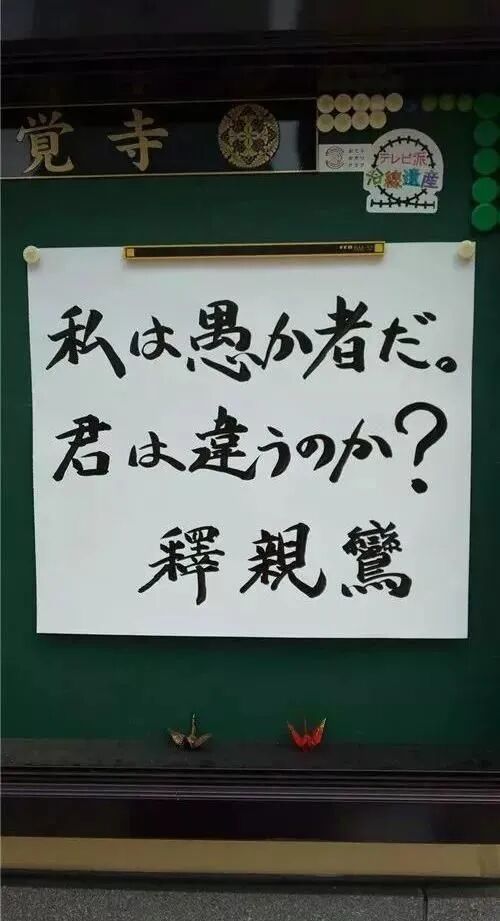 覚寺
テレビ派
沿線遺産
私は愚か者だ。
君は違うのか?
釋親鸞